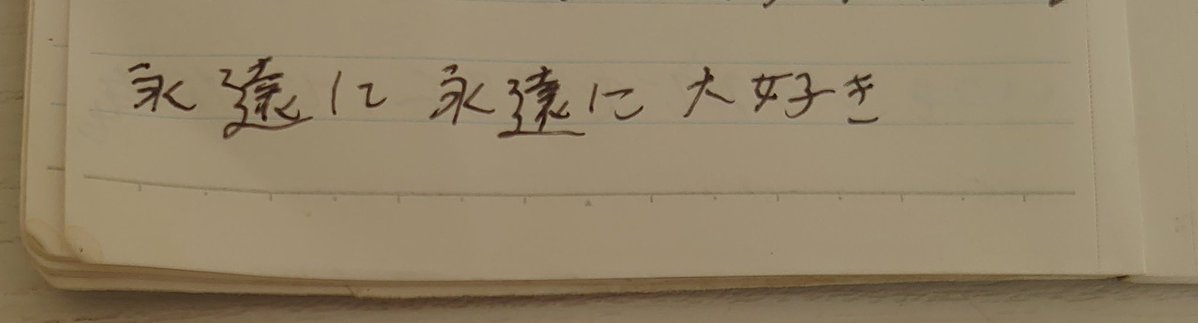 永遠に 永遠に 大好き